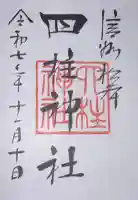 信州松本
四柱神社
令和七年十一月十日